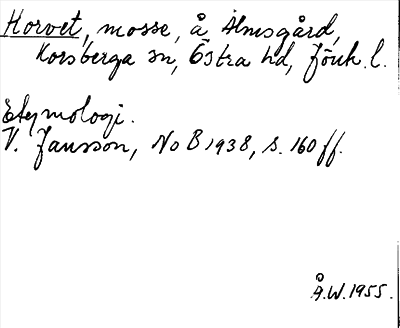 Horvet, mosse, å Almsgård,
Korsberga sn, Östra hd, Jönk. l.
Etymologi.
V. Jansson, NoB 1938, s. 160 ff.
Å.W. 1955.